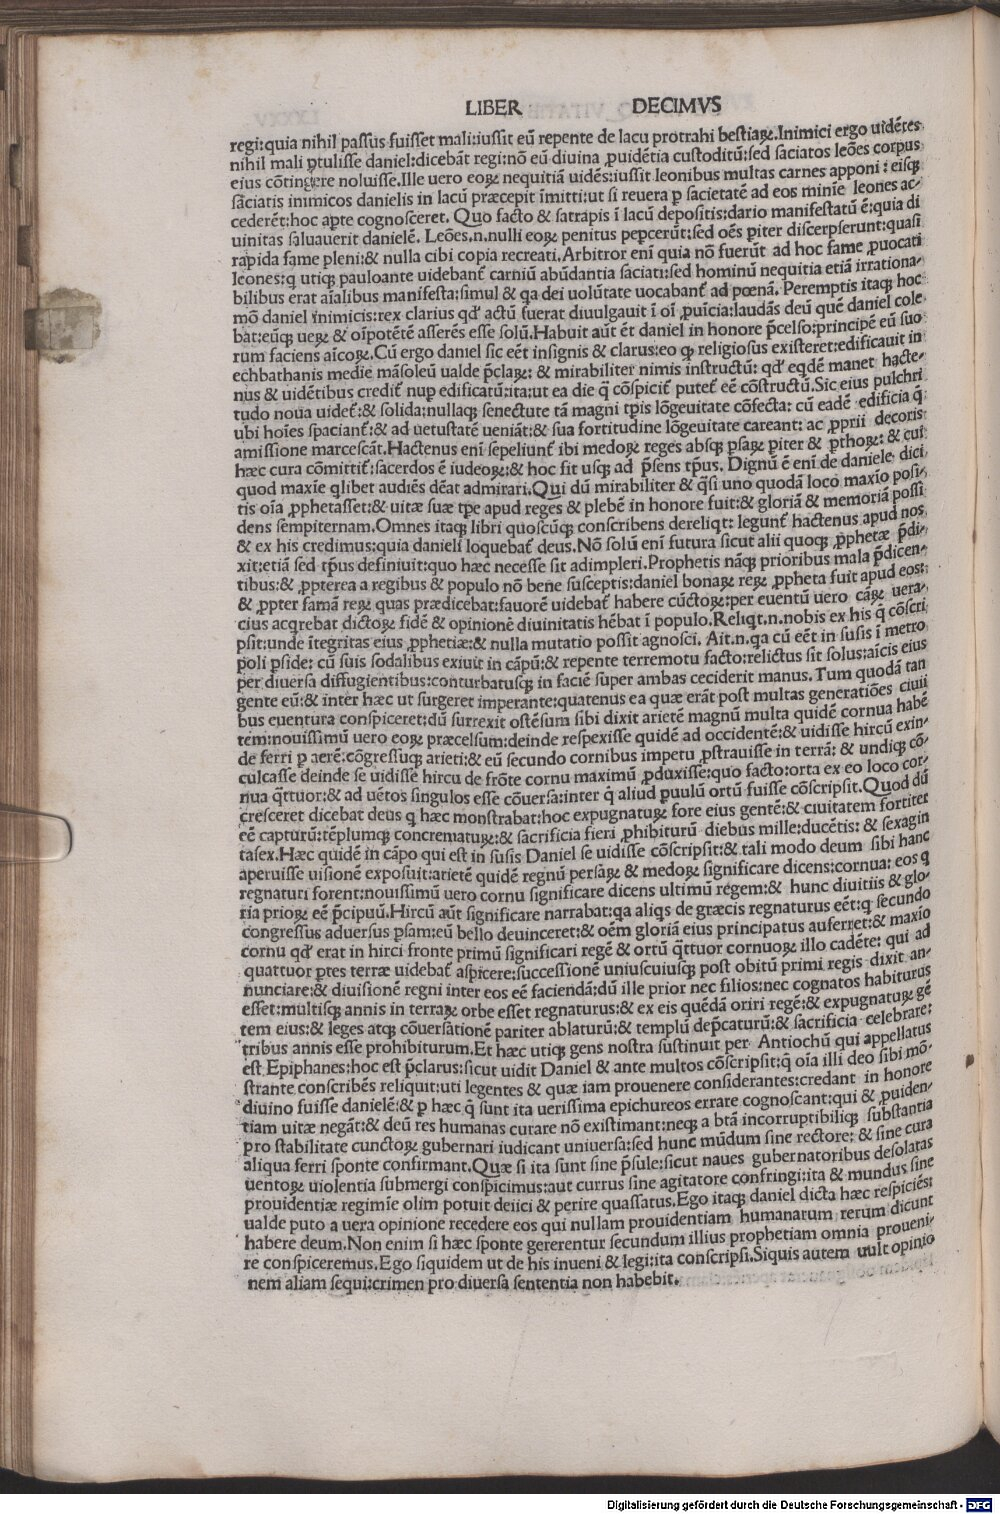 LIBER DECIMVS
regi:quia nihil passus fuisset mali:iussit eū repente de lacu protrahi bestiaꝝ.Inimici ergo uidētes
nihil mali ꝑtulisse daniel:dicebāt regi:nō eū diuina ꝓuidētia custoditū:sed saciatos leōes corpus
eius cōtingere noluisse.Ille uero eoꝝ nequitiā uidēs:iussit leonibus multas carnes apponi: eisqꝫ
saciatis inimicos danielis in lacū præcepit īmitti:ut si reuera ꝑ sacietatē ad eos minīe leones ac/
cederēt:hoc aꝑte cognosceret. Quo facto & satrapis ī lacū depositis:dario manifestatū ē:quia di
uinitas saluauerit danielē. Leōes.n.nulli eoꝝ penitus peꝑcerūt:sed oēs ꝑiter discerpserunt:quasi
rapida fame pleni:& nulla cibi copia recreati.Arbitror enī quia nō fuerūt ad hoc fame ꝓuocati
leones:q utiqꝫ pauloante uidebant̄ carniū abūdantia saciati:sed hominū nequitia etiā irrationa/
bilibus erat aīalibus manifesta:simul & qa dei uolūtate uocabant̄ ad pœnā. Peremptis itaqꝫ hoc
mō daniel inimicis:rex clarius qd̄ actū fuerat diuulgauit ī oī ꝓuīcia:laudās deū quē daniel cole
bat:eūqꝫ ueꝝ & oīpotētē asserēs esse solū.Habuit aūt ēt daniel in honore p̄celso:principē eū suo
rum faciens aīcoꝝ.Cū ergo daniel sic eēt insignis & clarus:eo ꝙ religiosus existeret:edificauit in
echbathanis medie māsoleū ualde p̄claꝝ: & mirabiliter nimis instructū: qd̄ eqdē manet hacte/
nus & uidētibus credit̄ nuꝑ edificatū:ita:ut ea die q̄ cōspicit̄ putet̄ eē cōstructū.Sic eius pulchri
tudo noua uidet̄:& solida:nullaqꝫ senectute tā magni tꝑis lōgeuitate cōfecta: cū eadē edificia q̄
ubi hoīes spaciant̄:& ad uetustatē ueniāt:& sua fortitudine lōgeuitate careant: ac ꝓprii decoris
amissione marcescāt.Hactenus enī sepeliunt̄ ibi medoꝝ reges absqꝫ psaꝝ ꝑiter & ꝑthoꝝ: & cui
hæc cura cōmittit̄:sacerdos ē iudeoꝝ:& hoc sit usqꝫ ad p̄sens tꝑus. Dignū ē enī de daniele dici
quod maxīe qlibet audiēs dēat admirari.Qui dū mirabiliter & q̄si uno quodā loco maxīo posi/
tis oīa ꝓphetasset:& uitæ suæ tꝑe apud reges & plebē in honore fuit:& gloriā & memoriā possi
dens sempiternam.Omnes itaqꝫ libri quoscūqꝫ conscribens dereliqt: legunt̄ hactenus apud nos
& ex his credimus:quia danieli loquebat̄ deus.Nō solū enī futura sicut alii quoqꝫ ꝓphetæ p̄di/
xit:etiā sed tꝑus definiuit:quo hæc necesse sit adimpleri.Prophetis nāqꝫ prioribus mala p̄dicen/
tibus:& ꝓpterea a regibus & populo nō bene susceptis:daniel bonaꝝ reꝝ ꝓpheta fuit apud eos:
& ꝓpter famā reꝝ quas prædicebat:fauorē uidebat̄ habere cūctoꝝ:per euentū uero caꝝ uera/
cius acqrebat dictoꝝ fidē & opinionē diuinitatis hēbat ī populo.Reliqt.n.nobis ex his q̄ cōscri
psit:unde ītegritas eius ꝓphetiæ:& nulla mutatio possit agnosci. Ait.n.qa cū eēt in susis ī metro
poli pside: cū suis sodalibus exiuit in cāpū:& repente terremotu facto:relictus sit solus:aīcis eius
per diuersa diffugientibus:conturbatusqꝫ in faciē super ambas ceciderit manus.Tum quodā tan
gente eū:& inter hæc ut surgeret imperante:quatenus ea quæ erāt post multas generatiōes ciui
bus euentura conspiceret:dū surrexit ostēsum sibi dixit arietē magnū multa quidē cornua habē
tem:nouissimū uero eoꝝ præcelsum:deinde respexisse quidē ad occidentē:& uidisse hircū exin/
de ferri ꝑ aerē:cōgressuqꝫ arieti:& eū secundo cornibus impetu ꝓstrauisse in terrā: & undiqꝫ cō/
culcasse deinde se uidisse hircu de frōte cornu maximū ꝓduxisse:quo facto:orta ex eo loco cor/
nua q̄ttuor:& ad uētos singulos esse cōuersa:inter q̄ aliud ꝑuulū ortū fuisse cōscripsit.Quod dū
cresceret dicebat deus q hæc monstrabat:hoc expugnatuꝝ fore eius gentē:& ciuitatem fortiter
eē capturū:tēplumqꝫ concrematuꝝ:& sacrificia fieri ꝓhibiturū diebus mille:ducētis: & sexagin
tasex.Hæc quidē in cāpo qui est in susis Daniel se uidisse cōscripsit:& tali modo deum sibi hanc
aperuisse uisionē exposuit:arietē quidē regnū persaꝝ & medoꝝ significare dicens:cornua: eos q
regnaturi forent:nouissimū uero cornu significare dicens ultimū regem:& hunc diuitiis & glo/
ria prioꝝ eē p̄cipuū.Hircū aūt significare narrabat:qa aliqs de græcis regnaturus eēt:q secundo
congressus aduersus psam:eū bello deuinceret:& oēm gloriā eius principatus auferret:& maxīo
cornu qd̄ erat in hirci fronte primū significari regē & ortū q̄ttuor cornuoꝝ illo cadēte: qui ad
quattuor ꝑtes terræ uidebat̄ aspicere:successionē uniuscuiusqꝫ post obitū primi regis dixit an/
nunciare:& diuisionē regni inter eos eē faciendā:dū ille prior nec filios:nec cognatos habiturus
esset:multisqꝫ annis in terraꝝ orbe esset regnaturus:& ex eis quēdā oriri regē:& expugnatuꝝ gē
tem eius:& leges atqꝫ cōuersationē pariter ablaturū:& templū dep̄caturū:& sacrificia celebrare:
tribus annis esse prohibiturum.Et hæc utiqꝫ gens nostra sustinuit per Antiochū qui appellatus
est Epiphanes:hoc est p̄clarus:sicut uidit Daniel & ante multos cōscripsit:q̄ oīa illi deo sibi mō/
strante conscribēs reliquit:uti legentes & quæ iam prouenere considerantes:credant in honore
diuino fuisse danielē:& ꝑ hæc q̄ sunt ita uerissima epichureos errare cognoscant:qui & ꝓuiden/
tiam uitæ negāt:& deū res humanas curare nō existimant:neqꝫ a btā incorruptibiliqꝫ substantia
pro stabilitate cunctoꝝ gubernari iudicant uniuersa:sed hunc mūdum sine rectore: & sine cura
aliqua ferri sponte confirmant.Quæ si ita sunt sine p̄sule:sicut naues gubernatoribus desolatas
uentoꝝ uiolentia submergi conspicimus:aut currus sine agitatore confringi:ita & mundus sine
prouidentiæ regimīe olim potuit deiici & perire quassatus.Ego itaqꝫ daniel dicta hæc respiciēs:
ualde puto a uera opinione recedere eos qui nullam prouidentiam humanarum rerum dicunt
habere deum.Non enim si hæc sponte gererentur secundum illius prophetiam omnia proueni/
re conspiceremus.Ego siquidem ut de his inueni & legi:ita conscripsi.Siquis autem uult opinio
nem aliam sequi:crimen pro diuersa sententia non habebit.
Digitalisierung gefördert durch die Deutsche Forschungsgemeinschaft - DFG